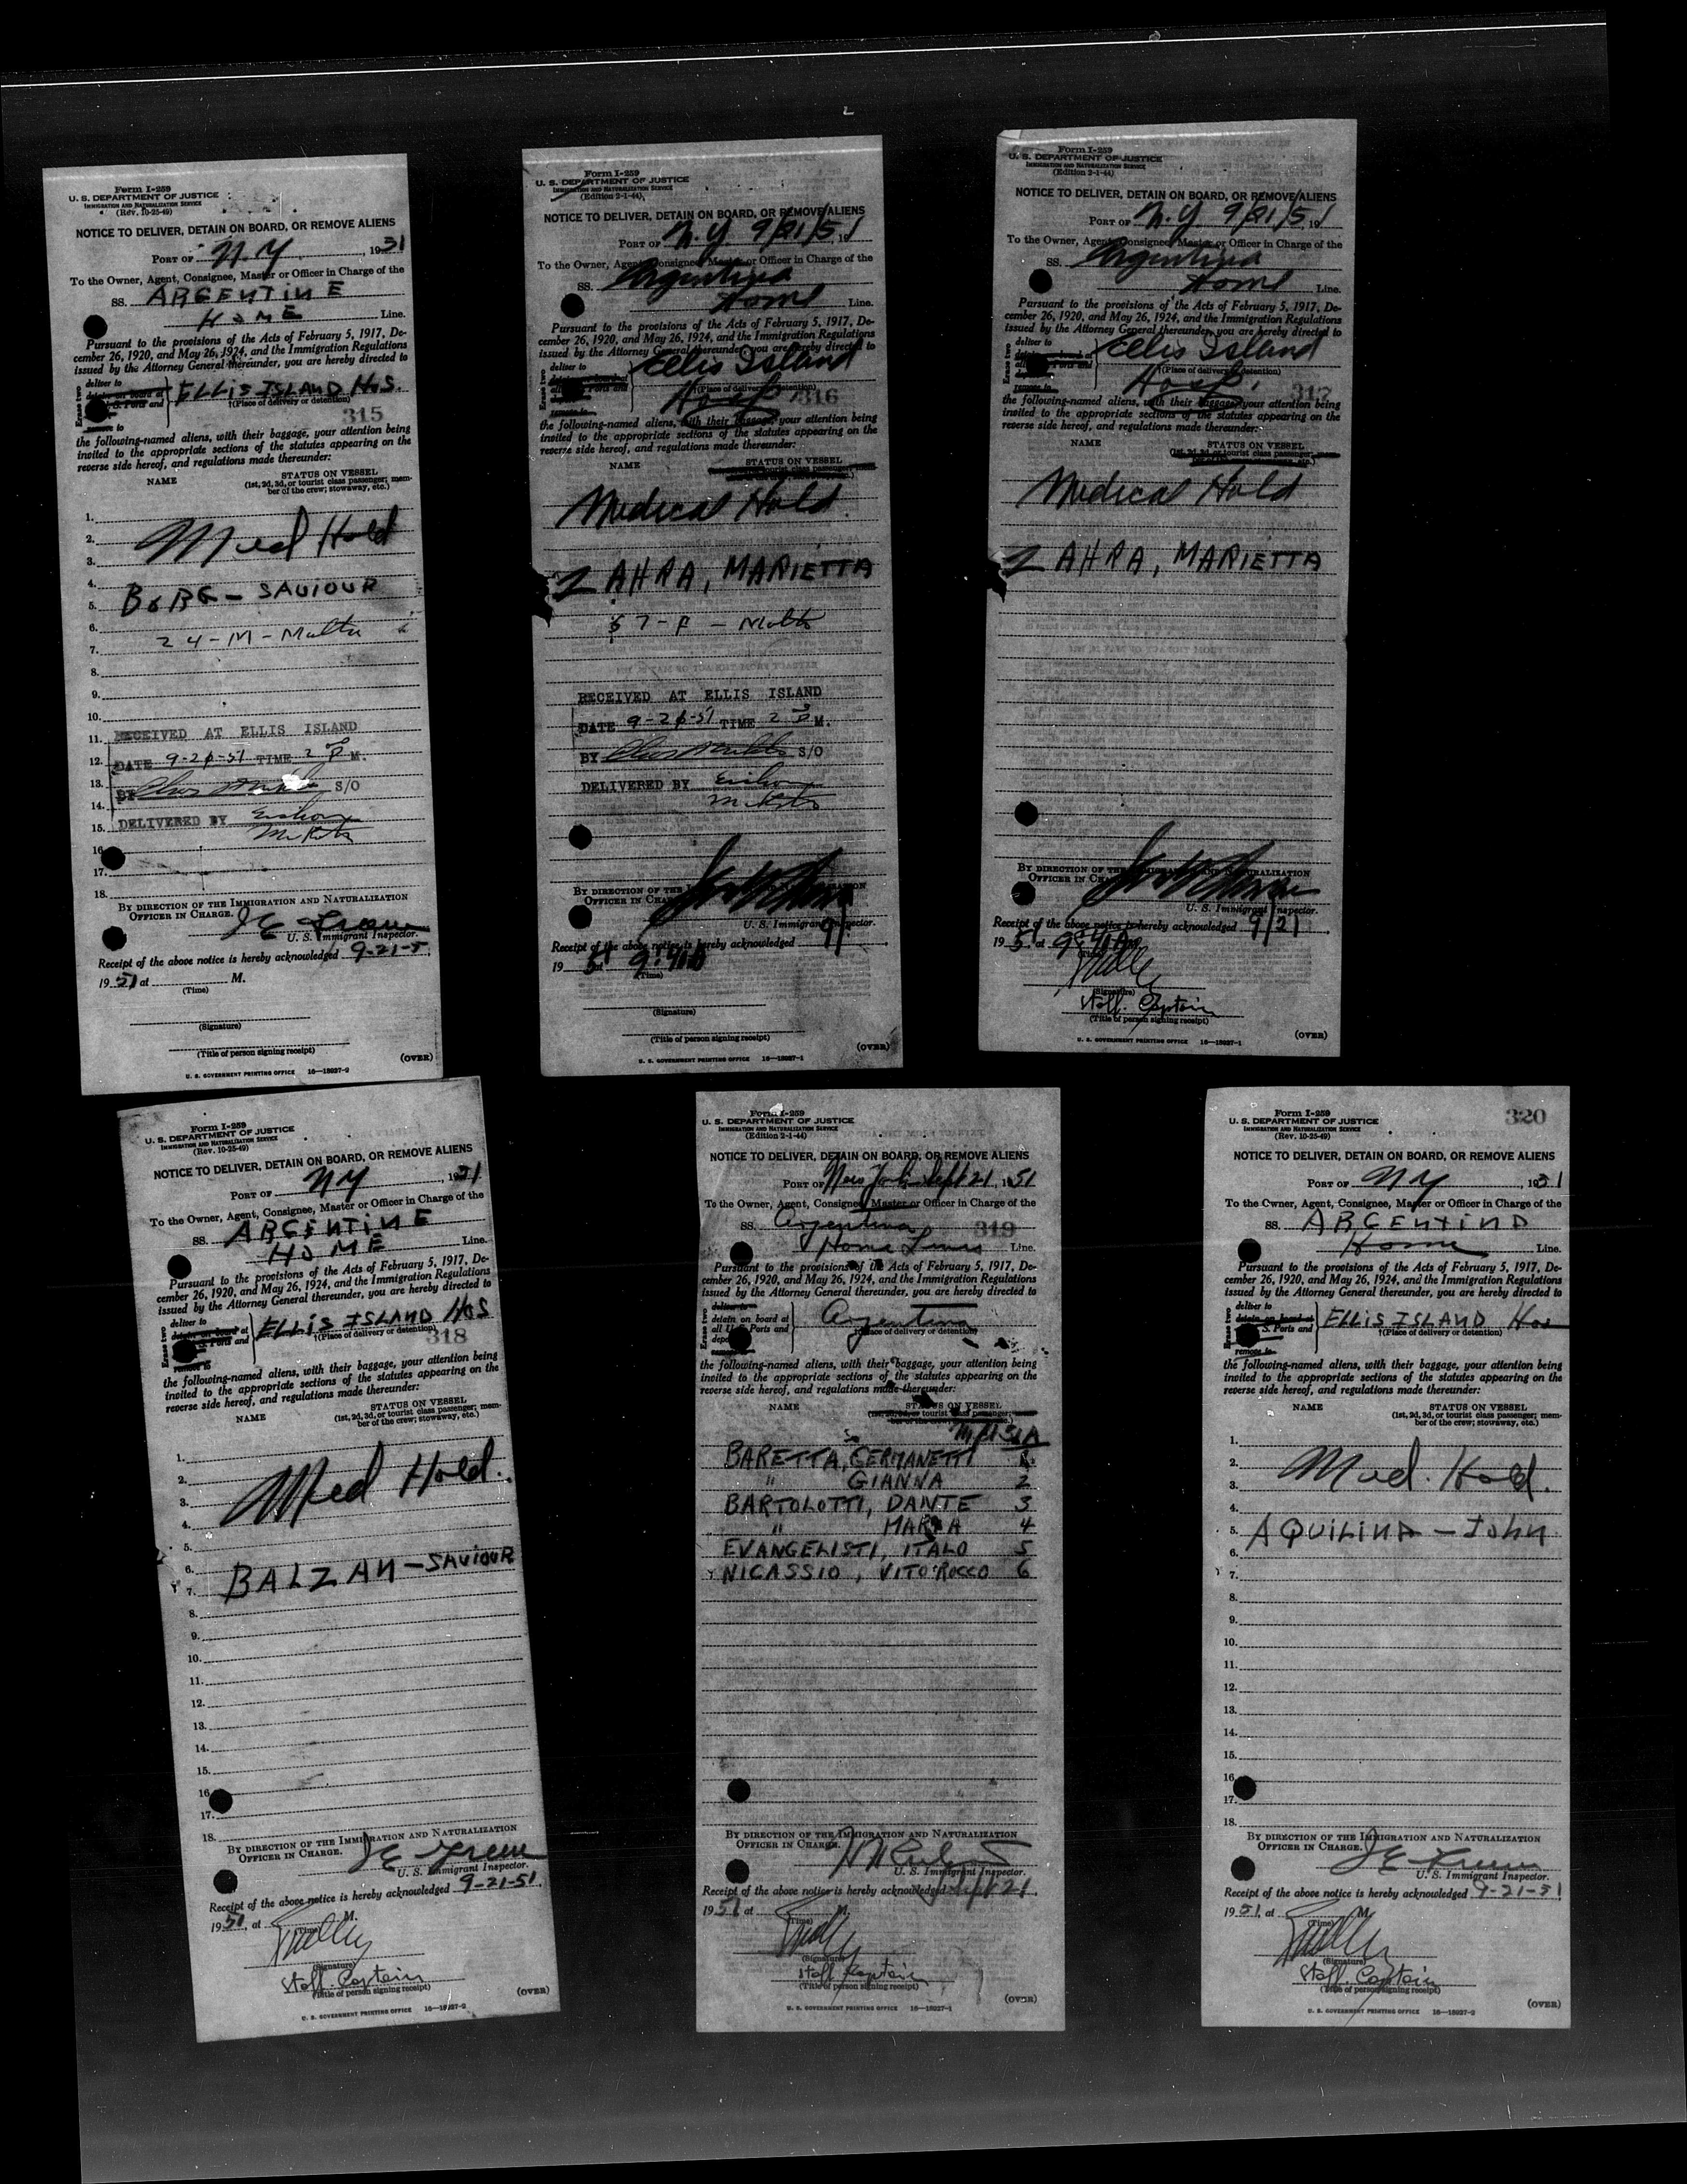 Form I-259
U. S. DEPARTMENT OF JUSTICE
IMMIGRATION AND NATURALIZATION SERVICE
(Rev. 10-25-49)
NOTICE TO DELIVER, DETAIN ON BOARD, OR REMOVE ALIENS
PORT OF N.Y. , 1951
To the Owner, Agent, Consignee, Master or Officer in Charge of the
SS. ARGENTINE
HOME Line.
Pursuant to the provisions of the Acts of February 5, 1917, De-
cember 26, 1920, and May 26, 1924, and the Immigration Regulations
issued by the Attorney General thereunder, you are hereby directed to
Erase two
deliver to
detain on board at
S. Ports and
remove to
ELLIS ISLAND HOS.
†(Place of delivery or detention)
315
the following-named aliens, with their baggage, your attention being
invited to the appropriate sections of the statutes appearing on the
reverse side hereof, and regulations made thereunder:
NAME
STATUS ON VESSEL
(1st, 2d, 3d, or tourist class passenger; mem-
ber of the crew; stowaway, etc.)
1.
2. Med Hold
3.
4.
5. BORG - SAVIOUR
6.
7. 24 - M - Malta
8.
9.
10.
11. RECEIVED AT ELLIS ISLAND
12. DATE 9-21-51 TIME 2 P M.
13. BY S/O
14.
15. DELIVERED BY
16.
17.
18.
BY DIRECTION OF THE IMMIGRATION AND NATURALIZATION
OFFICER IN CHARGE.
J E Green
U. S. Immigrant Inspector.
Receipt of the above notice is hereby acknowledged 9-21-5
1951 at M.
(Time)
(Signature)
(Title of person signing receipt)
(OVER)
U. S. GOVERNMENT PRINTING OFFICE 16—18927-2
Form I-259
U. S. DEPARTMENT OF JUSTICE
IMMIGRATION AND NATURALIZATION SERVICE
(Edition 2-1-44)
NOTICE TO DELIVER, DETAIN ON BOARD, OR REMOVE ALIENS
PORT OF N.Y. 9/21/51, 19
To the Owner, Agent, Consignee, Master or Officer in Charge of the
SS. Argentina
Home Line.
Pursuant to the provisions of the Acts of February 5, 1917, De-
cember 26, 1920, and May 26, 1924, and the Immigration Regulations
issued by the Attorney General thereunder, you are hereby directed to
Erase two
deliver to
detain on board at
all Ports and
remove to
Ellis Island
(Place of delivery or detention)
Hosp. 316
the following-named aliens, with their baggage, your attention being
invited to the appropriate sections of the statutes appearing on the
reverse side hereof, and regulations made thereunder:
NAME
STATUS ON VESSEL
Medical Hold
ZAHRA, MARIETTA
57 - F - Malta
RECEIVED AT ELLIS ISLAND
DATE 9-21-51 TIME 2 P M.
BY S/O
DELIVERED BY
BY DIRECTION OF THE IMMIGRATION AND NATURALIZATION
OFFICER IN CHARGE.
U. S. Immigrant Inspector.
Receipt of the above notice is hereby acknowledged 9/
1951 at 9:40A
(Time)
(Signature)
(Title of person signing receipt)
(OVER)
U. S. GOVERNMENT PRINTING OFFICE 16—18927-1
Form I-259
U. S. DEPARTMENT OF JUSTICE
IMMIGRATION AND NATURALIZATION SERVICE
(Edition 2-1-44)
NOTICE TO DELIVER, DETAIN ON BOARD, OR REMOVE ALIENS
PORT OF N.Y. 9/21/51, 19
To the Owner, Agent, Consignee, Master or Officer in Charge of the
SS. Argentina
Home Line.
Pursuant to the provisions of the Acts of February 5, 1917, De-
cember 26, 1920, and May 26, 1924, and the Immigration Regulations
issued by the Attorney General thereunder, you are hereby directed to
Erase two
deliver to
detain on board at
remove to
Ellis Island
(Place of delivery or detention)
Hosp. 317
the following-named aliens, with their baggage, your attention being
invited to the appropriate sections of the statutes appearing on the
reverse side hereof, and regulations made thereunder:
NAME
STATUS ON VESSEL
(1st, 2d, 3d, or tourist class passenger;
Medical Hold
ZAHRA, MARIETTA
BY DIRECTION OF THE IMMIGRATION AND NATURALIZATION
OFFICER IN CHARGE.
U. S. Immigrant Inspector.
Receipt of the above notice is hereby acknowledged 9/21
1951 at 9:40A
(Signature)
Staff. Captain
(Title of person signing receipt)
(OVER)
U. S. GOVERNMENT PRINTING OFFICE 16—18927-1
Form I-259
U. S. DEPARTMENT OF JUSTICE
IMMIGRATION AND NATURALIZATION SERVICE
(Rev. 10-25-49)
NOTICE TO DELIVER, DETAIN ON BOARD, OR REMOVE ALIENS
PORT OF NY , 1951
To the Owner, Agent, Consignee, Master or Officer in Charge of the
SS. ARGENTINE
HOME Line.
Pursuant to the provisions of the Acts of February 5, 1917, De-
cember 26, 1920, and May 26, 1924, and the Immigration Regulations
issued by the Attorney General thereunder, you are hereby directed to
Erase two
deliver to
detain on board at
S. Ports and
remove to
ELLIS ISLAND HOS
†(Place of delivery or detention)
318
the following-named aliens, with their baggage, your attention being
invited to the appropriate sections of the statutes appearing on the
reverse side hereof, and regulations made thereunder:
NAME
STATUS ON VESSEL
(1st, 2d, 3d, or tourist class passenger; mem-
ber of the crew; stowaway, etc.)
1.
2. Med Hold.
3.
4.
5.
6.
7. BALZAN - SAVIOUR
8.
9.
10.
11.
12.
13.
14.
15.
16.
17.
18.
BY DIRECTION OF THE IMMIGRATION AND NATURALIZATION
OFFICER IN CHARGE.
J E Green
U. S. Immigrant Inspector.
Receipt of the above notice is hereby acknowledged 9-21-51
1951, at M.
(Time)
(Signature)
Staff. Captain
(Title of person signing receipt)
(OVER)
U. S. GOVERNMENT PRINTING OFFICE 16—18927-2
Form I-259
U. S. DEPARTMENT OF JUSTICE
IMMIGRATION AND NATURALIZATION SERVICE
(Edition 2-1-44)
NOTICE TO DELIVER, DETAIN ON BOARD, OR REMOVE ALIENS
PORT OF New York Sept 21, 1951
To the Owner, Agent, Consignee, Master or Officer in Charge of the
SS. Argentina 319
Home Lines Line.
Pursuant to the provisions of the Acts of February 5, 1917, De-
cember 26, 1920, and May 26, 1924, and the Immigration Regulations
issued by the Attorney General thereunder, you are hereby directed to
Erase two
deliver to
detain on board at
all U. Ports and
Argentina
(Place of delivery or detention)
the following-named aliens, with their baggage, your attention being
invited to the appropriate sections of the statutes appearing on the
reverse side hereof, and regulations made thereunder:
NAME
STATUS ON VESSEL
BARETTA, GERMANETTI 1
" GIANNA 2
BARTOLOTTI, DANTE 3
" MARIA 4
EVANGELISTI, ITALO 5
NICASSIO, VITO ROCCO 6
BY DIRECTION OF THE IMMIGRATION AND NATURALIZATION
OFFICER IN CHARGE.
U. S. Immigrant Inspector.
Receipt of the above notice is hereby acknowledged Sept 21
1951 at M.
(Time)
(Signature)
Staff. Captain
(Title of person signing receipt)
(OVER)
U. S. GOVERNMENT PRINTING OFFICE 16—18927-1
320
Form I-259
U. S. DEPARTMENT OF JUSTICE
IMMIGRATION AND NATURALIZATION SERVICE
(Rev. 10-25-49)
NOTICE TO DELIVER, DETAIN ON BOARD, OR REMOVE ALIENS
PORT OF NY , 1951
To the Owner, Agent, Consignee, Master or Officer in Charge of the
SS. ARGENTINA
Home Line.
Pursuant to the provisions of the Acts of February 5, 1917, De-
cember 26, 1920, and May 26, 1924, and the Immigration Regulations
issued by the Attorney General thereunder, you are hereby directed to
Erase two
deliver to
detain on board at
S. Ports and
remove to
ELLIS ISLAND Hos
†(Place of delivery or detention)
the following-named aliens, with their baggage, your attention being
invited to the appropriate sections of the statutes appearing on the
reverse side hereof, and regulations made thereunder:
NAME
STATUS ON VESSEL
(1st, 2d, 3d, or tourist class passenger; mem-
ber of the crew; stowaway, etc.)
1.
2. Med. Hold.
3.
4.
5. AQUILINA - John
6.
7.
8.
9.
10.
11.
12.
13.
14.
15.
16.
17.
18.
BY DIRECTION OF THE IMMIGRATION AND NATURALIZATION
OFFICER IN CHARGE.
J E Green
U. S. Immigrant Inspector.
Receipt of the above notice is hereby acknowledged 9-21-51
1951, at M.
(Time)
(Signature)
Staff. Captain
(Title of person signing receipt)
(OVER)
U. S. GOVERNMENT PRINTING OFFICE 16—18927-2